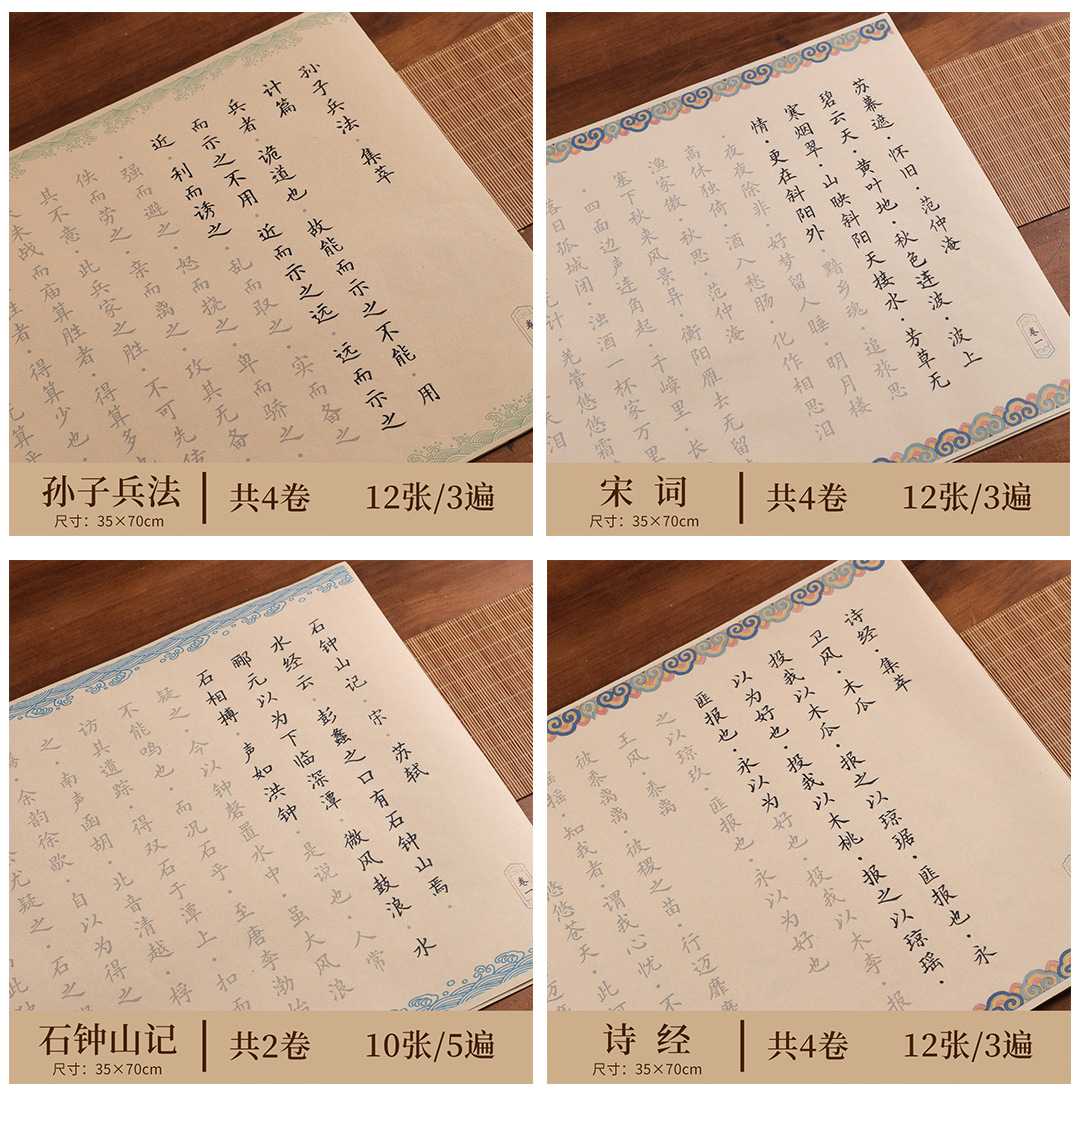 孙子兵法·集萃
计篇
兵者·诡道也·故能而示之不能·用
而示之不用·近而示之远·远而示之
近·利而诱之·乱而取之·实而备之
强而避之·怒而挠之·卑而骄之
佚而劳之·亲而离之·攻其无备
其不意·此兵家之胜·不可先传
未战而庙算胜者·得算多
者·得算少也
孙子兵法
尺寸：35×70cm
共4卷
12张/3遍
苏幕遮·怀旧·范仲淹
碧云天·黄叶地·秋色连波·波上
寒烟翠·山映斜阳天接水·芳草无
情·更在斜阳外·黯乡魂·追旅思
夜夜除非·好梦留人睡·明月楼
高休独倚·酒入愁肠·化作相思泪
渔家傲·秋思·范仲淹
塞下秋来风景异·衡阳雁去无留
四面边声连角起·千嶂里·长
落日孤城闭·浊酒一杯家万里
无计·羌管悠悠霜
卷一
宋 词
尺寸：35×70cm
共4卷
12张/3遍
石钟山记·宋·苏轼
水经云·彭蠡之口有石钟山焉·
郦元以为下临深潭·微风鼓浪·水
石相搏·声如洪钟·是说也·人常
疑之·今以钟磬置水中·虽大风浪
不能鸣也·而况石乎·至唐李渤始
访其遗踪·得双石于潭上·扣而
之·南声函胡·北音清越·桴
余韵徐歇·自以为得之
尤疑之·石之
卷一
石钟山记
尺寸：35×70cm
共2卷
10张/5遍
诗经·集萃
卫风·木瓜
投我以木瓜·报之以琼琚·匪报也·永
以为好也·投我以木桃·报之以琼瑶·
匪报也·永以为好也·投我以木李·报
之以琼玖·匪报也·永以为好也
王风·黍离
彼黍离离·彼稷之苗·行迈靡靡
摇·知我者·谓我心忧·不
悠悠苍天·此何
诗 经
尺寸：35×70cm
共4卷
12张/3遍